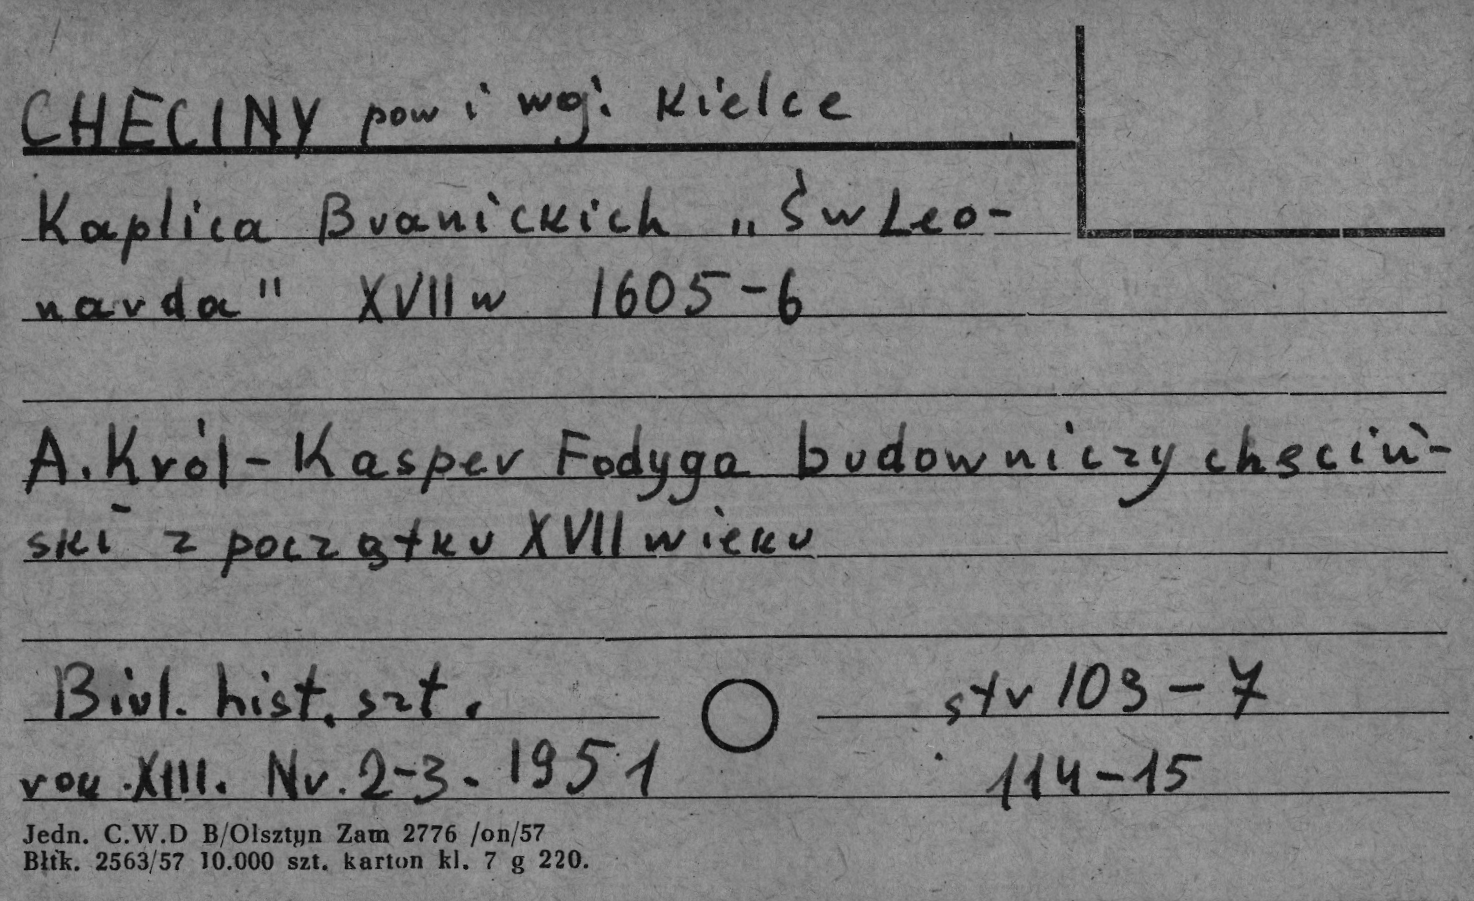 CHĘCINY pow i woj. Kielce
Kaplica Branickich „Św Leo-
narda" XVII w 1605-6
A. Król - Kasper Fodyga budowniczy chęciń-
ski z początku XVII wieku
Biul. hist. szt. str 103-7
rok XIII. Nr. 2-3. 1951 114-15
Jedn. C.W.D B/Olsztyn Zam 2776 /on/57
Błtk. 2563/57 10.000 szt. karton kl. 7 g 220.